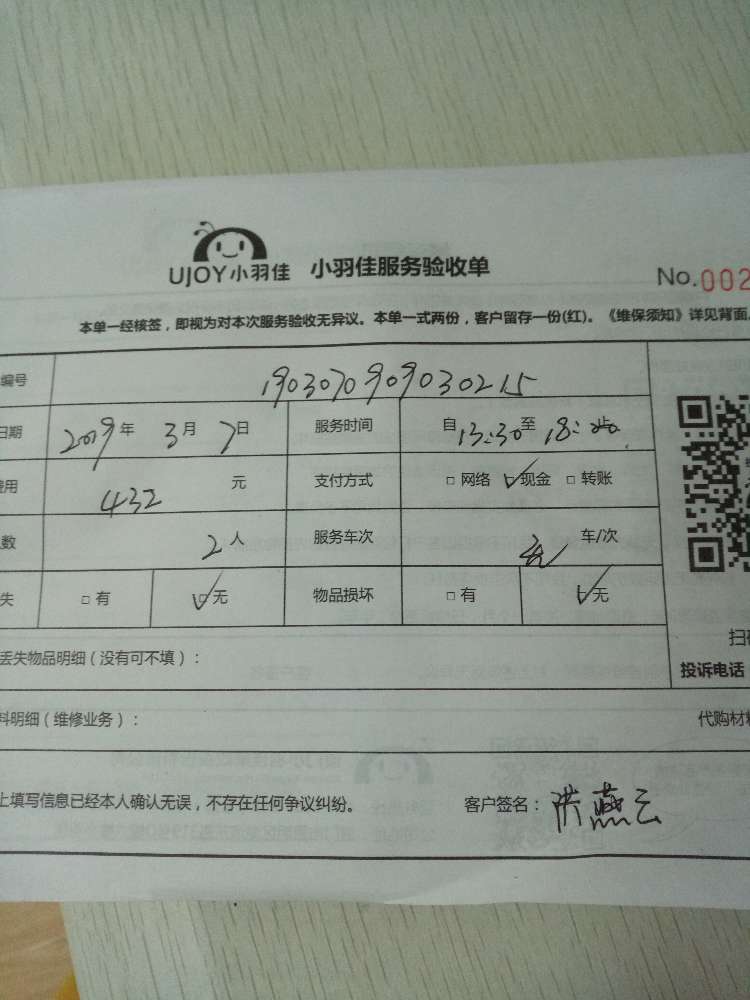 UJOY小羽佳 小羽佳服务验收单 No.002
本单一经核签，即视为对本次服务验收无异议。本单一式两份，客户留存一份(红)。《维保须知》详见背面。
编号 1903070909030215
日期 2019年3月7日 服务时间 自13:30至18:00止
费用 432元 支付方式 □网络 ☑现金 □转账
数 2人 服务车次 车/次
失 □有 ☑无 物品损坏 □有 ☑无
丢失物品明细（没有可不填）：
扫
投诉电话
料明细（维修业务）： 代购材料
上填写信息已经本人确认无误，不存在任何争议纠纷。 客户签名：洪燕云